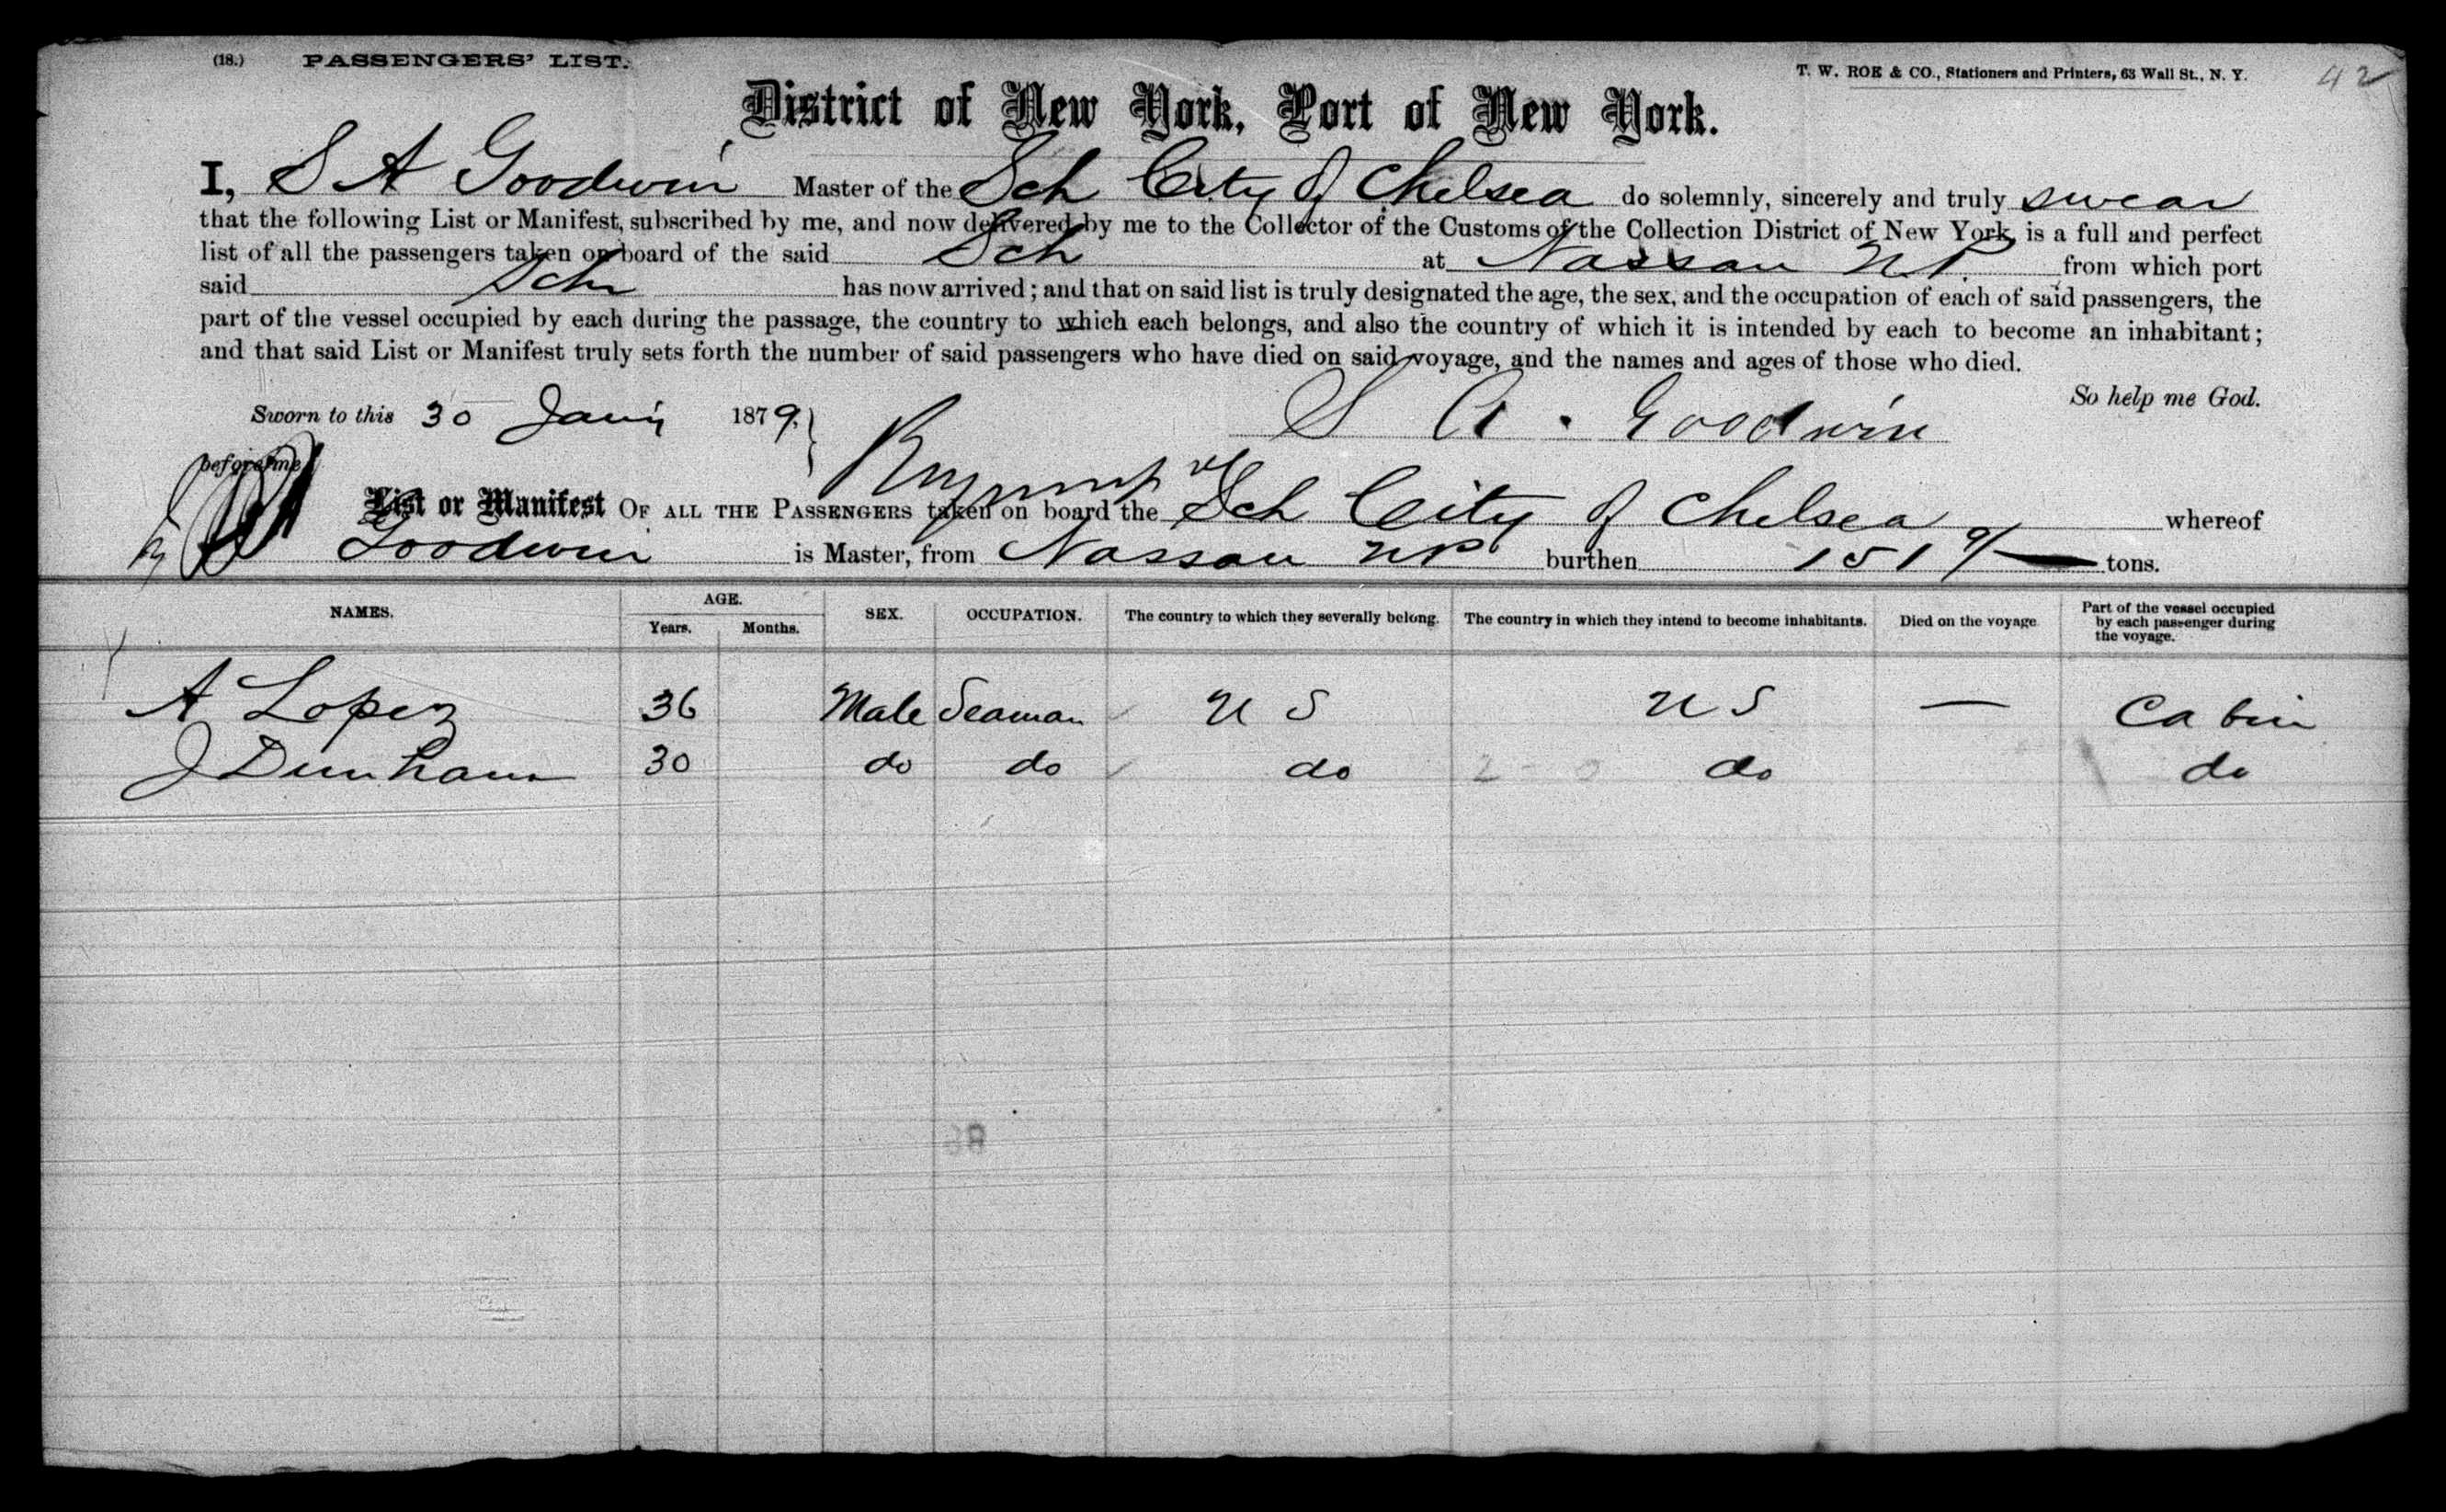 (18.) PASSENGERS' LIST.
T. W. ROE & CO., Stationers and Printers, 63 Wall St., N. Y. 42
District of New York, Port of New York.
I, S A Goodwin Master of the Sch City of Chelsea do solemnly, sincerely and truly swear
that the following List or Manifest, subscribed by me, and now delivered by me to the Collector of the Customs of the Collection District of New York, is a full and perfect
list of all the passengers taken on board of the said Sch at Nassau N.P. from which port
said Schr has now arrived; and that on said list is truly designated the age, the sex, and the occupation of each of said passengers, the
part of the vessel occupied by each during the passage, the country to which each belongs, and also the country of which it is intended by each to become an inhabitant;
and that said List or Manifest truly sets forth the number of said passengers who have died on said voyage, and the names and ages of those who died.
So help me God.
Sworn to this 30 Jany 1879. S A. Goodwin
before me
List or Manifest OF ALL THE PASSENGERS taken on board the Sch City of Chelsea whereof
Goodwin is Master, from Nassau NP burthen 151 tons.
NAMES. AGE. Years. Months. SEX. OCCUPATION. The country to which they severally belong. The country in which they intend to become inhabitants. Died on the voyage Part of the vessel occupied by each passenger during the voyage.
A Lopez 36 Male Seaman U S U S — Cabin
J Dunham 30 do do do do do